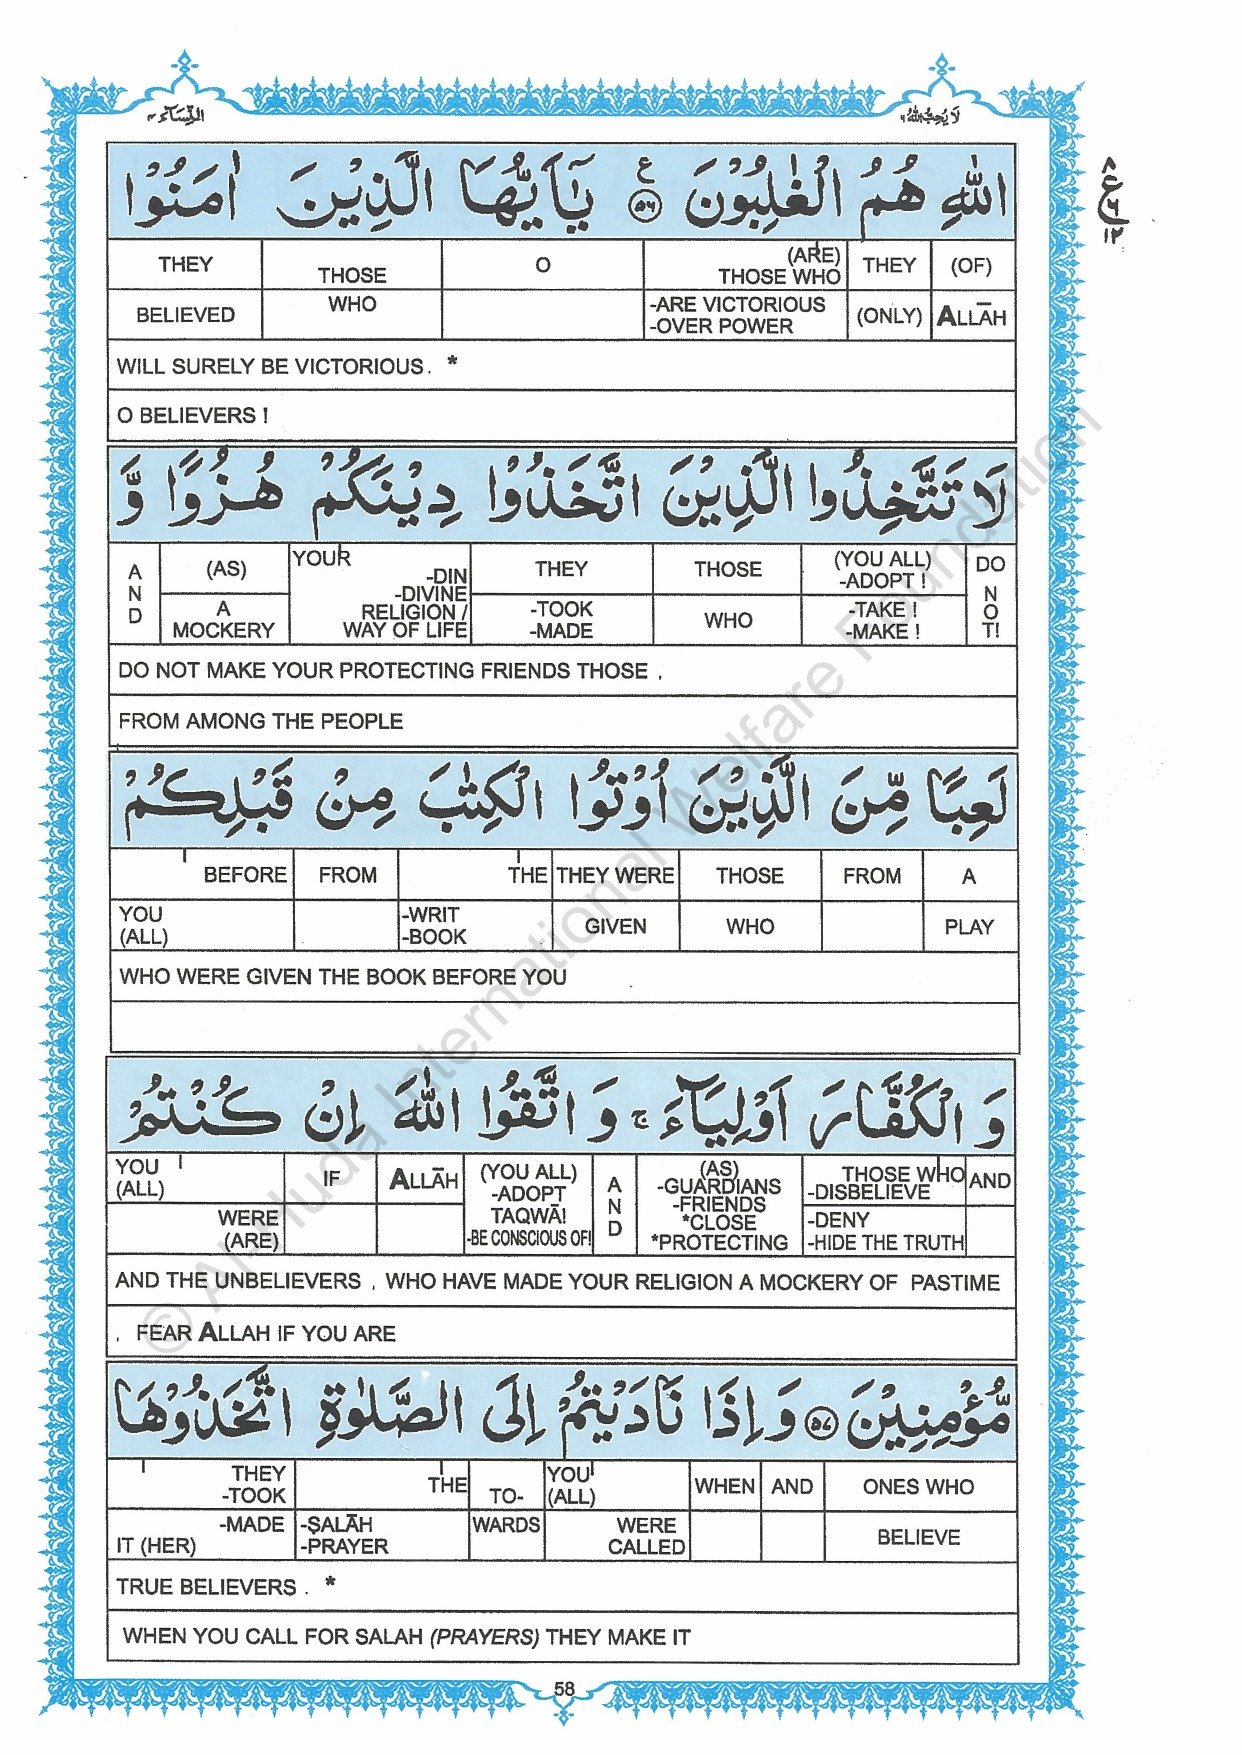 النِّسَآء ٤
لَا يُحِبُّ اللهُ ٦
اللّٰهِ هُمُ الْغٰلِبُوْنَ ﴿٥٦﴾ ع يٰۤاَيُّهَا الَّذِيْنَ اٰمَنُوْا
ع ٨ ٦ ١٢
THEY THOSE O (ARE) THOSE WHO THEY (OF)
BELIEVED WHO -ARE VICTORIOUS -OVER POWER (ONLY) ALLĀH
WILL SURELY BE VICTORIOUS. *
O BELIEVERS !
لَا تَتَّخِذُوا الَّذِيْنَ اتَّخَذُوْا دِيْنَكُمْ هُزُوًا وَّ
AND (AS) YOUR -DIN -DIVINE RELIGION / WAY OF LIFE THEY THOSE (YOU ALL) -ADOPT ! DO NOT!
A MOCKERY -TOOK -MADE WHO -TAKE ! -MAKE !
DO NOT MAKE YOUR PROTECTING FRIENDS THOSE ,
FROM AMONG THE PEOPLE
لَعِبًا مِّنَ الَّذِيْنَ اُوْتُوا الْكِتٰبَ مِنْ قَبْلِكُمْ
BEFORE FROM THE THEY WERE THOSE FROM A
YOU (ALL) -WRIT -BOOK GIVEN WHO PLAY
WHO WERE GIVEN THE BOOK BEFORE YOU
وَ الْكُفَّارَ اَوْلِيَآءَ ۚ وَ اتَّقُوا اللّٰهَ اِنْ كُنْتُمْ
YOU (ALL) IF ALLĀH (YOU ALL) -ADOPT TAQWĀ! -BE CONSCIOUS OF! AND (AS) -GUARDIANS -FRIENDS *CLOSE *PROTECTING THOSE WHO -DISBELIEVE AND
WERE (ARE) -DENY -HIDE THE TRUTH
AND THE UNBELIEVERS , WHO HAVE MADE YOUR RELIGION A MOCKERY OF PASTIME
, FEAR ALLAH IF YOU ARE
مُّؤْمِنِيْنَ ﴿٥٧﴾ وَ اِذَا نَادَيْتُمْ اِلَى الصَّلٰوةِ اتَّخَذُوْهَا
THEY -TOOK THE TO- YOU (ALL) WHEN AND ONES WHO
IT (HER) -MADE -ṢALĀH -PRAYER WARDS WERE CALLED BELIEVE
TRUE BELIEVERS . *
WHEN YOU CALL FOR SALAH (PRAYERS) THEY MAKE IT
58
© Al-Huda International Welfare Foundation